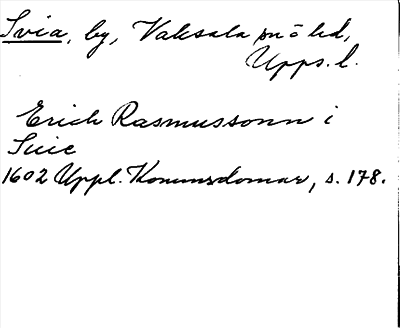 Svia, by, Vaksala sn o hd,
Upps. l.
Erich Rasmussonn i
Suie
1602 Uppl. Konungsdomar, s. 178.